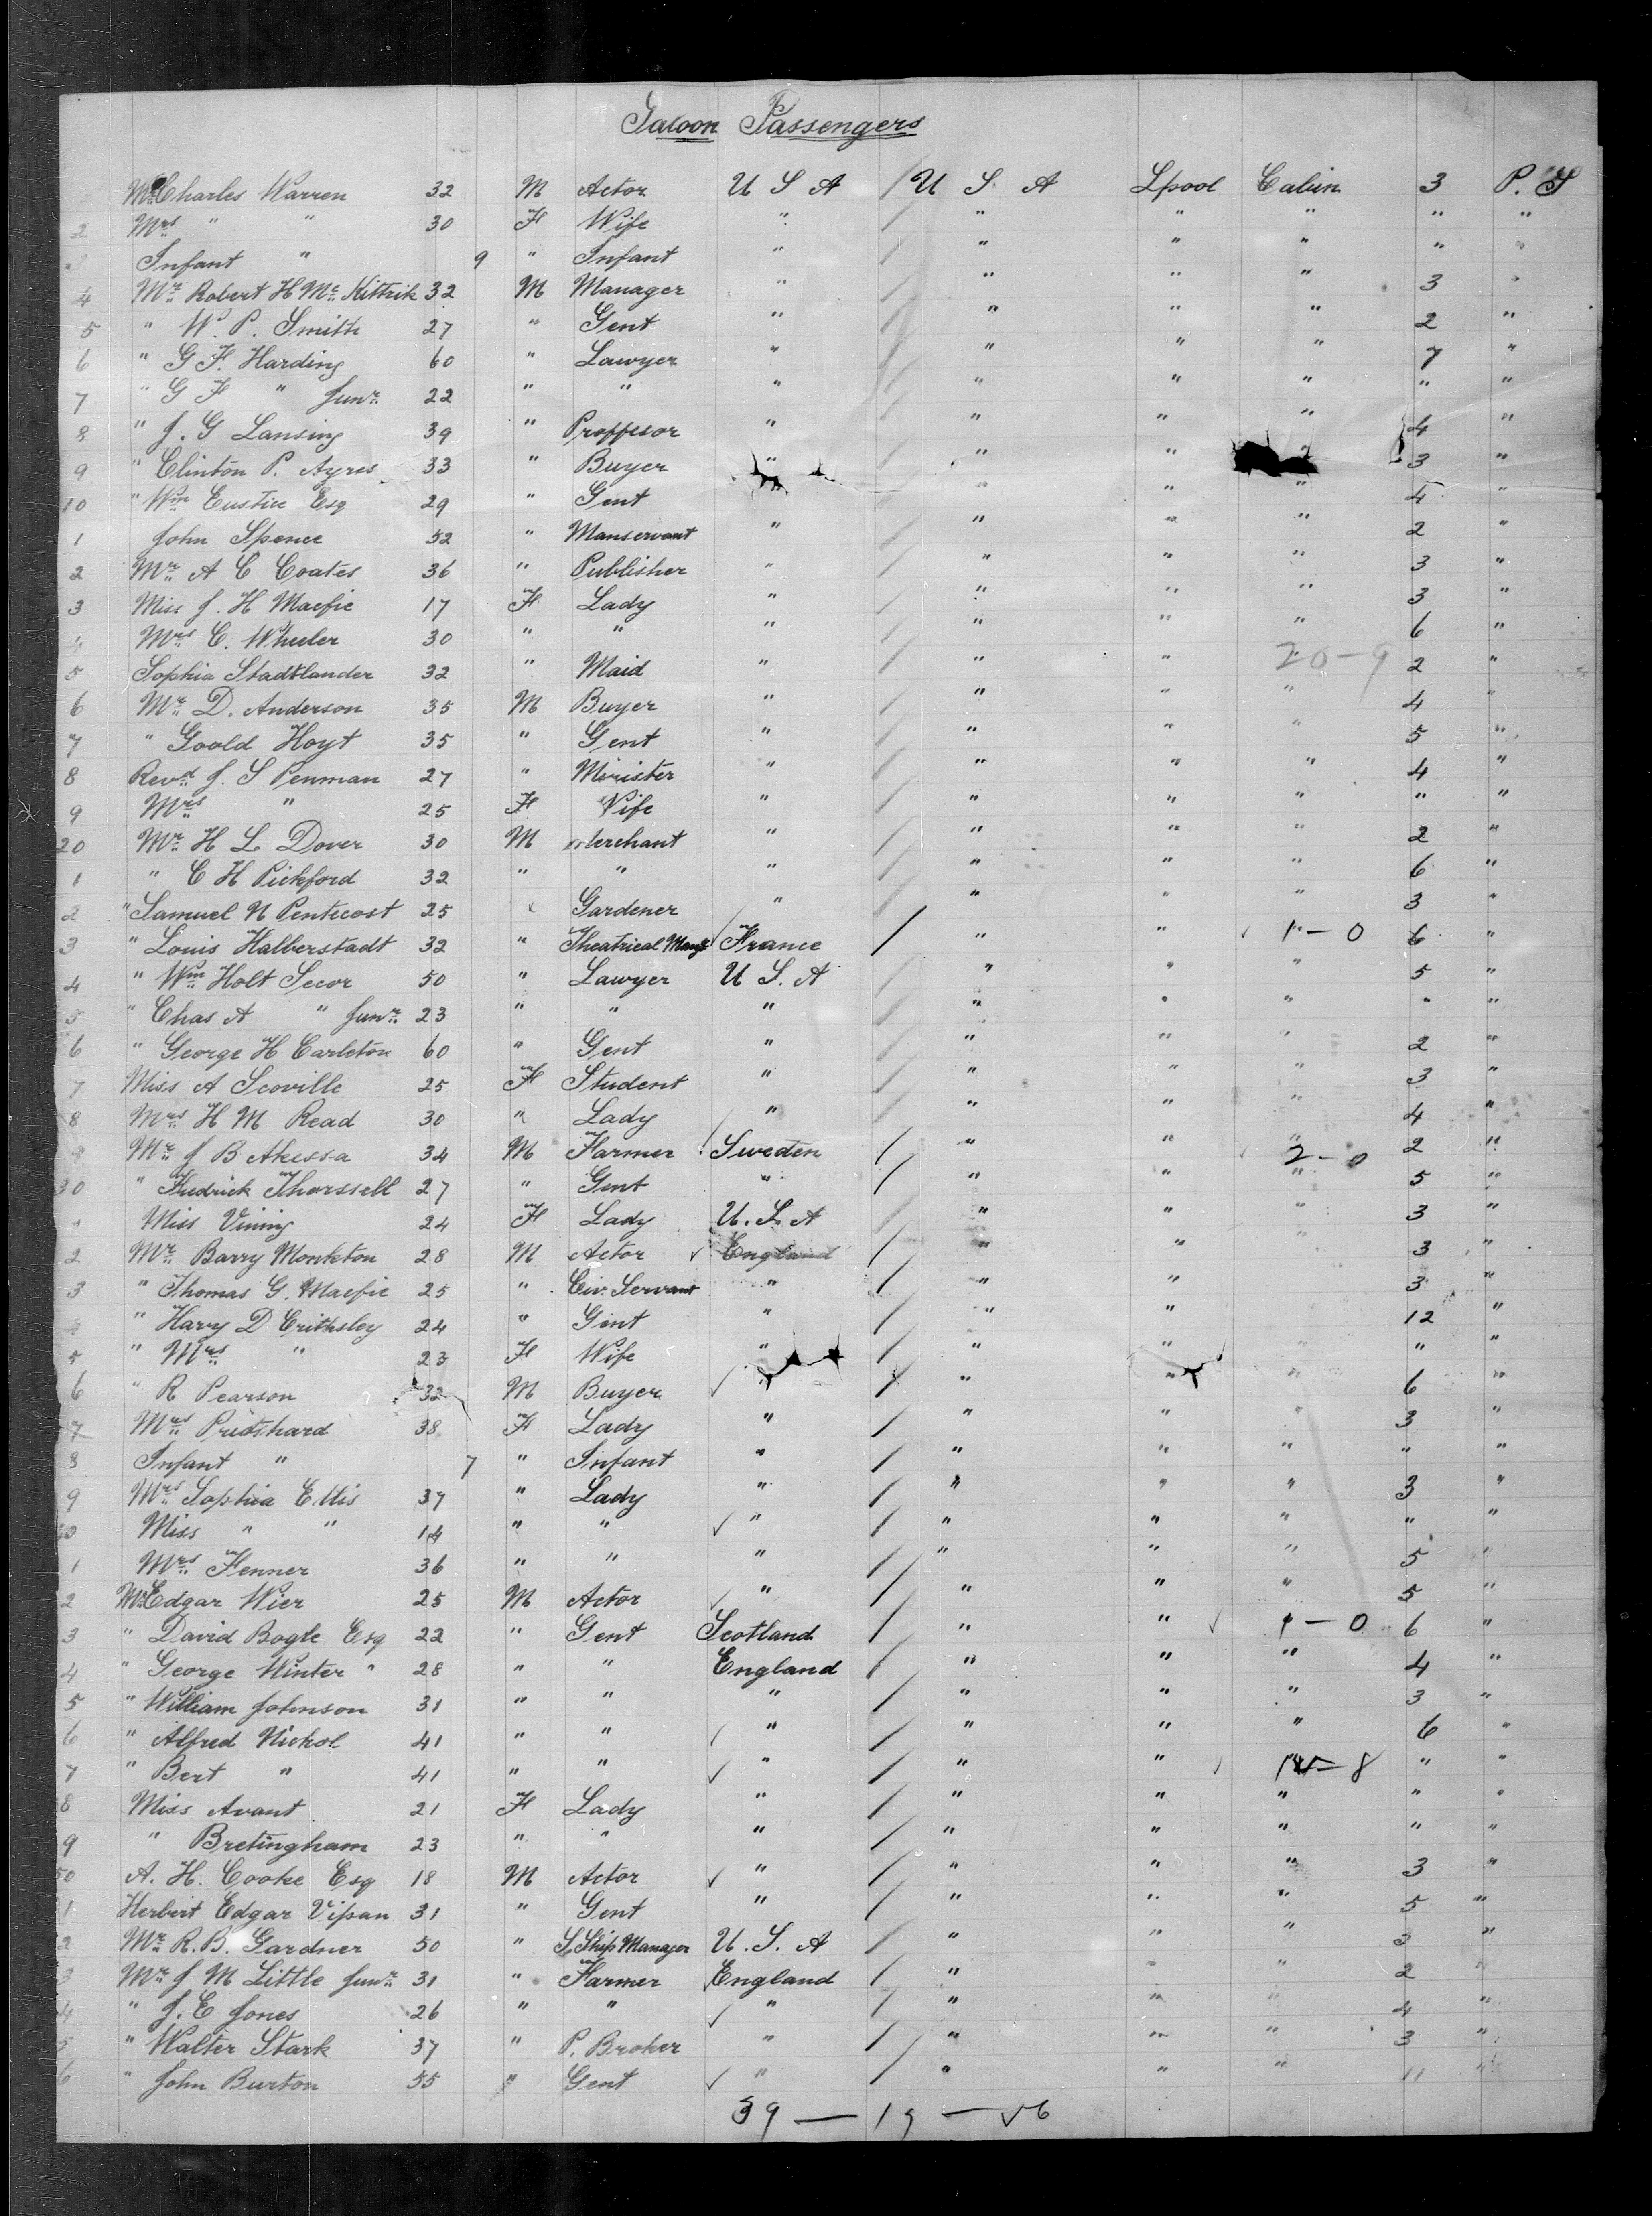 Saloon Passengers
Mr Charles Warren 32 M Actor U S A / U S. A Lpool Cabin 3 P. S
2 Mrs " " 30 F Wife " / " " " " "
3 Infant " 9 " Infant " / " " " " "
4 Mr Robert H Mc Kittrik 32 M Manager " / " " " 3 "
5 " W. P. Smith 27 " Gent " / " " " 2 "
6 " G F. Harding 60 " Lawyer " / " " " 7 "
7 " G F " Junr 22 " " " / " " " " "
8 " J. G Lansing 39 " Proffesor " / " " " 4 "
9 " Clinton P. Ayres 33 " Buyer " / " " " 3 "
10 " Wm Eustice Esq 29 " Gent " / " " " 4 "
1 John Spence 52 " Manservant " / " " " 2 "
2 Mr A C Coates 36 " Publisher " / " " " 3 "
3 Miss J. H Macfie 17 F Lady " / " " " 3 "
4 Mrs C. Wheeler 30 " " " / " " " 6 "
5 Sophia Stadtlander 32 " Maid " / " " 20-9 2 "
6 Mr D. Anderson 35 M Buyer " / " " " 4 "
7 " Goold Hoyt 35 " Gent " / " " " 5 "
8 Revd J. S Penman 27 " Minister " / " " " 4 "
9 Mrs " 25 F Wife " / " " " " "
20 Mr H L Dover 30 M Merchant " / " " " 2 "
1 " C H Pickford 32 " " " / " " " 6 "
2 " Samuel N Pentecost 25 " Gardener " / " " " 3 "
3 " Louis Halberstadt 32 " Theatrical Mangr France / " " ✓ 1-0 6 "
4 " Wm Holt Secor 50 " Lawyer U S. A / " " " 5 "
5 " Chas A " Junr 23 " " " / " " " " "
6 " George H Carleton 60 " Gent " / " " " 2 "
7 Miss A Scoville 25 F Student " / " " " 3 "
8 Mrs H M Read 30 " Lady " / " " " 4 "
9 Mr J B Akessa 34 M Farmer Sweden / " " ✓ 2-0 2 "
30 " Fredrick Thorssell 27 " Gent " / " " " 5 "
1 Miss Vining 24 F Lady U. S. A " " " 3 "
2 Mr Barry Monkton 28 M Actor ✓ England / " " " 3 "
3 " Thomas G. Macfie 25 " Civ. Servant " / " " 3 "
4 " Harry D Crithsley 24 " Gent " / " " 12 "
5 " Mrs " 23 F Wife " / " " " " "
6 " R Pearson 32 M Buyer " / " " " 6 "
7 Mrs Pritshard 38 F Lady " / " " " 3 "
8 Infant " 7 " Infant " / " " " " "
9 Mrs Sophia Ellis 37 " Lady " / " " " 3 "
40 Miss " " 14 " " ✓ " / " " " " "
1 Mrs Fenner 36 " " " / " " " 5 "
2 Mr Edgar Wier 25 M Actor ✓ " / " " " 5 "
3 " David Bogle Esq 22 " Gent Scotland / " " ✓ 1-0 6 "
4 " George Winter " 28 " " England / " " " 4 "
5 " William Johnson 31 " " " / " " " 3 "
6 " Alfred Nichol 41 " " ✓ " / " " " 6 "
7 " Bert " 41 " " ✓ " / " " ✓ " "
8 Miss Avant 21 F Lady " / " " " " "
9 " Bretingham 23 " " " / " " " " "
50 A. H. Cooke Esq 18 M Actor ✓ " / " " " 3 "
1 Herbert Edgar Vissan 31 " Gent " / " " " 5 "
2 Mr R. B. Gardner 50 " S. Ship Manager U. S. A / " " " 3 "
3 Mr J M Little Junr 31 " Farmer England / " " " 2 "
4 " J. E Jones 26 " " ✓ " / " " " 4 "
5 " Walter Stark 37 " P. Broker " / " " " 3 "
6 " John Burton 55 " Gent ✓ " / " " " 11 "
39 — 19 —